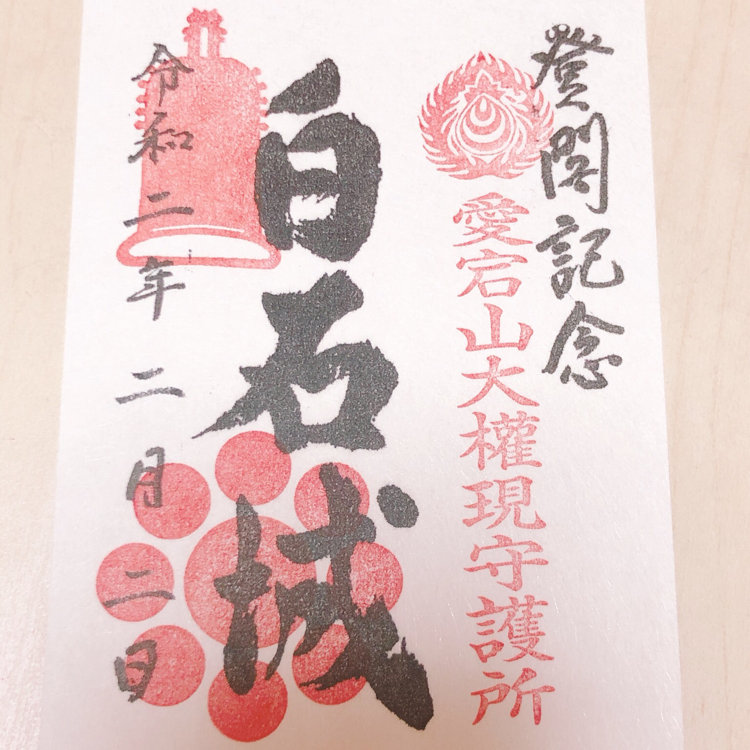 登閣記念
愛宕山大權現守護所
白石城
令和二年二月二日